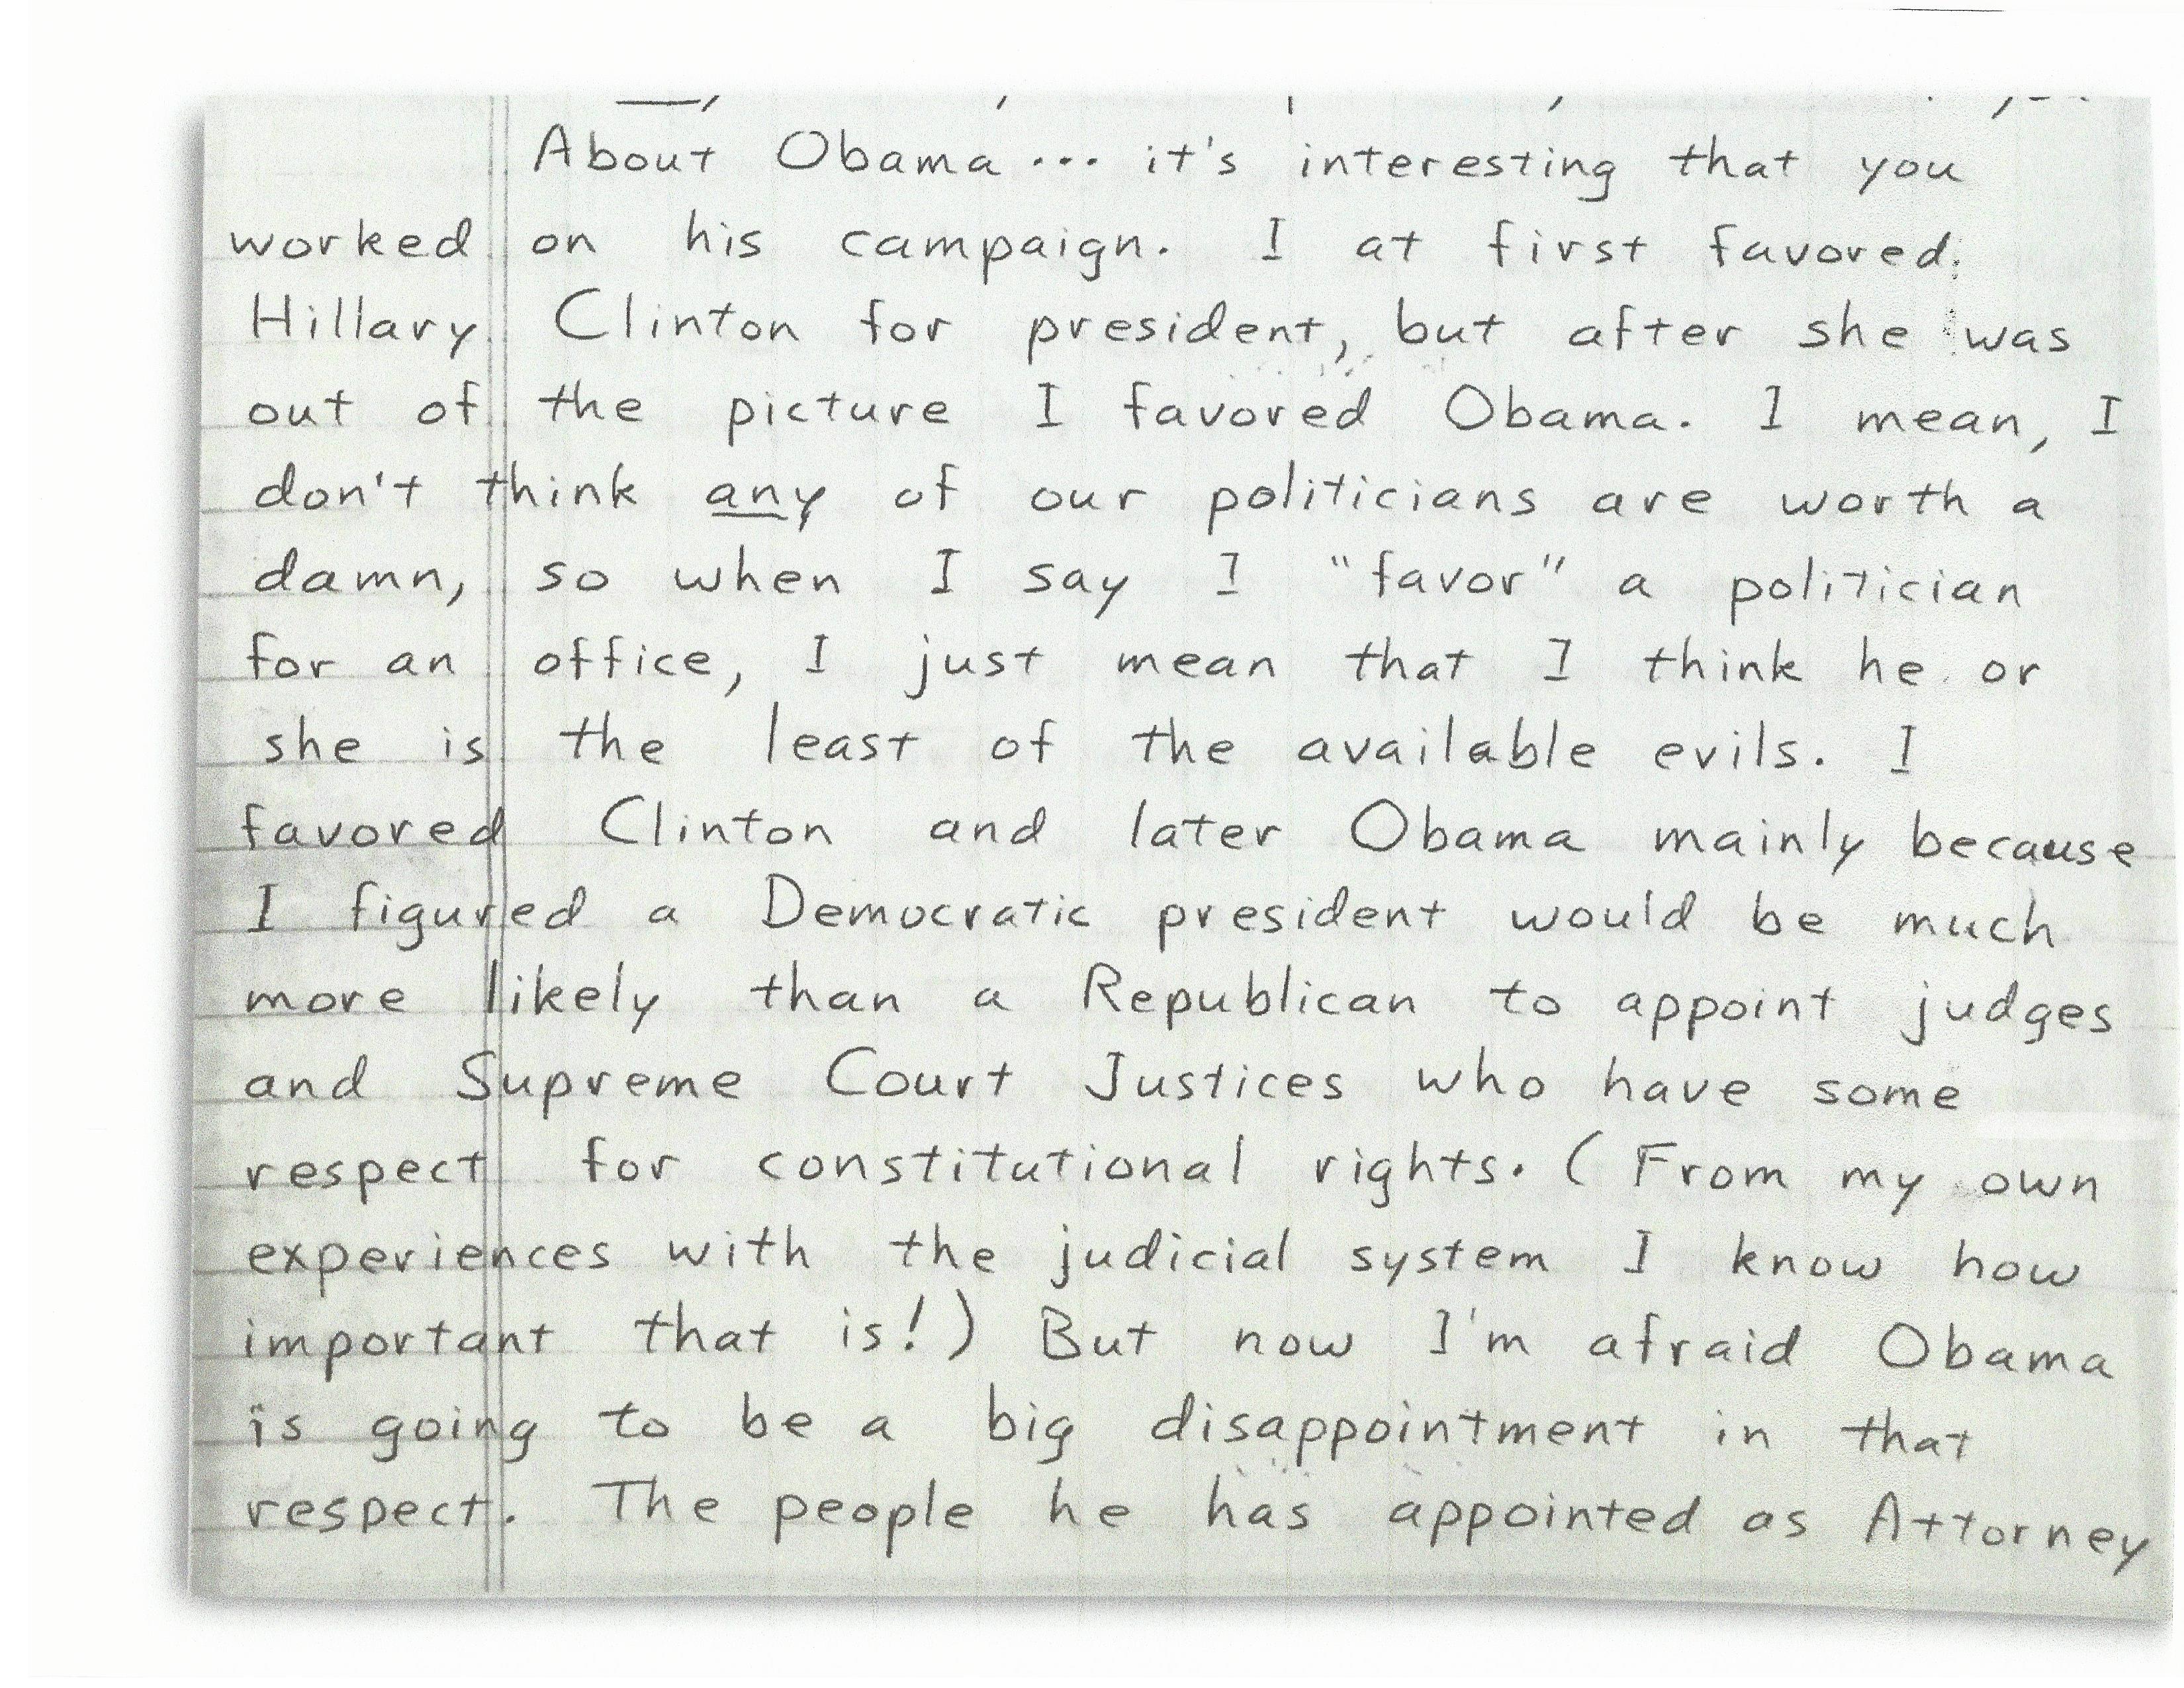 About Obama... it's interesting that you
worked on his campaign. I at first favored
Hillary Clinton for president, but after she was
out of the picture I favored Obama. I mean, I
don't think any of our politicians are worth a
damn, so when I say I "favor" a politician
for an office, I just mean that I think he or
she is the least of the available evils. I
favored Clinton and later Obama mainly because
I figured a Democratic president would be much
more likely than a Republican to appoint judges
and Supreme Court Justices who have some
respect for constitutional rights. (From my own
experiences with the judicial system I know how
important that is!) But now I'm afraid Obama
is going to be a big disappointment in that
respect. The people he has appointed as Attorney